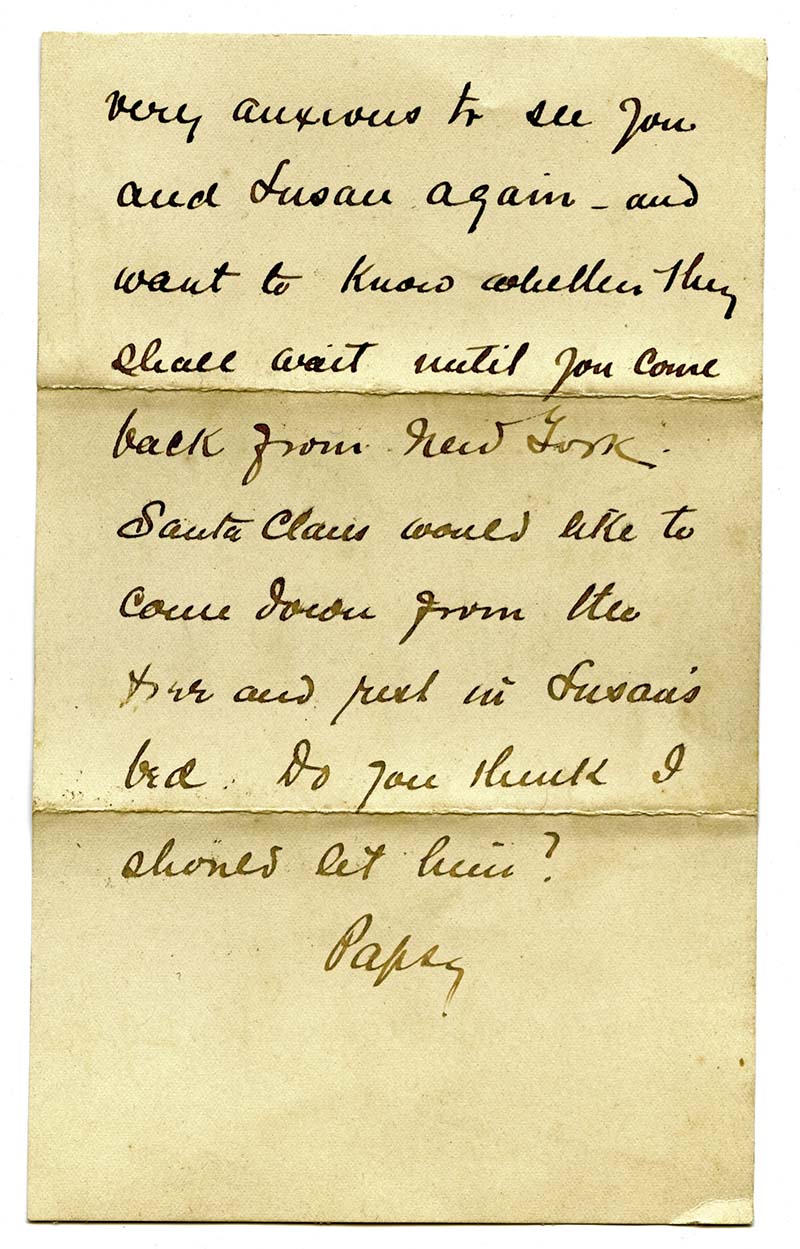 very anxious to see you
and Susan again - and
want to know whether they
shall wait until you come
back from New York.
Santa Claus would like to
come down from the
tree and rest in Susan's
bed. Do you think I
should let him?
Papsy